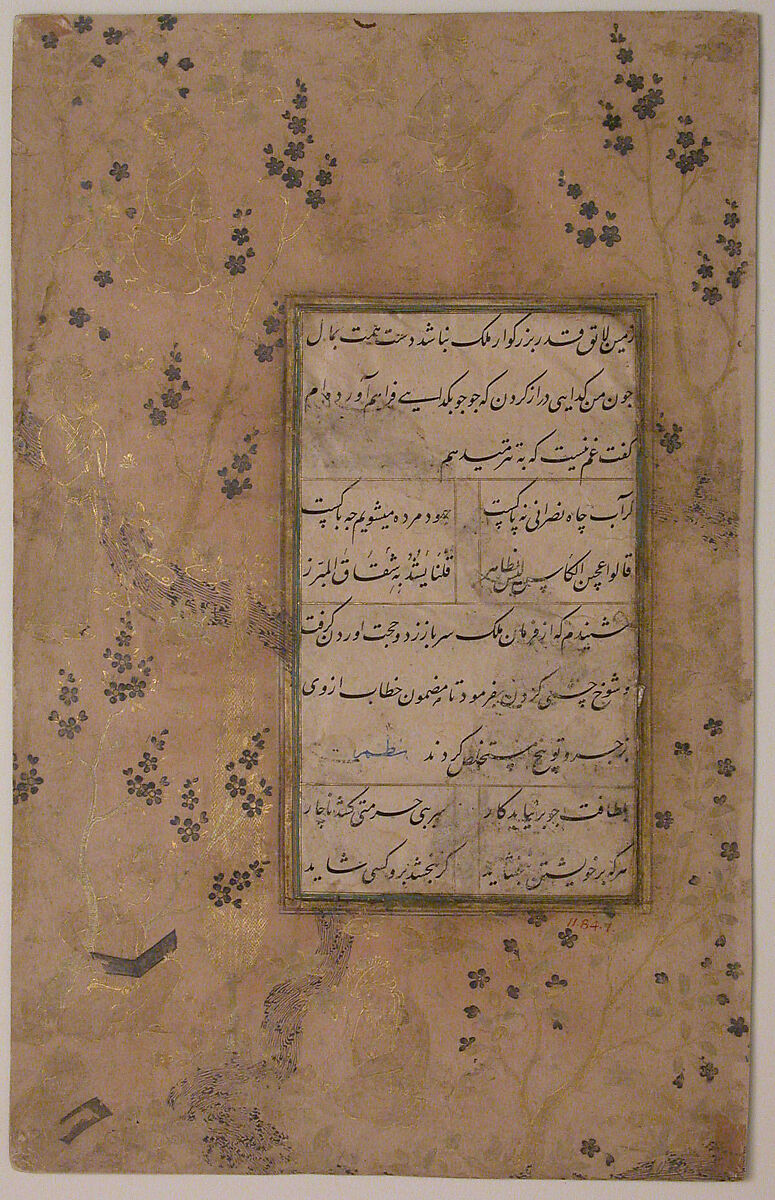 زمین لایق قدر بزرگوار ملک نباشد دست همت بمال
جون من کدایی دراز کردن که جو جو بکدایی فراهم آورده ام
کفت غم نیست که به تتر میدهم
کر آب چاه نصرانی نه پاکست جهود مرده میشویم چه باکست
قالوا عجین الکاس لیس بطاهر قلنا یسد به شقاق المبرز
شنیدم که از فرمان ملک سر باز زد و حجت اوردن کرفت
و شوخ چشمی کردن بفرمود تا مضمون خطاب ازوی
بزجر و توبیخ مستخلص کردند نظم
بلطافت جو برنیاید کار سر ببی حرمتی کشد ناچار
هرکه بر خویشتن نبخشاید کر نبخشد برو کسی شاید
11.84.7